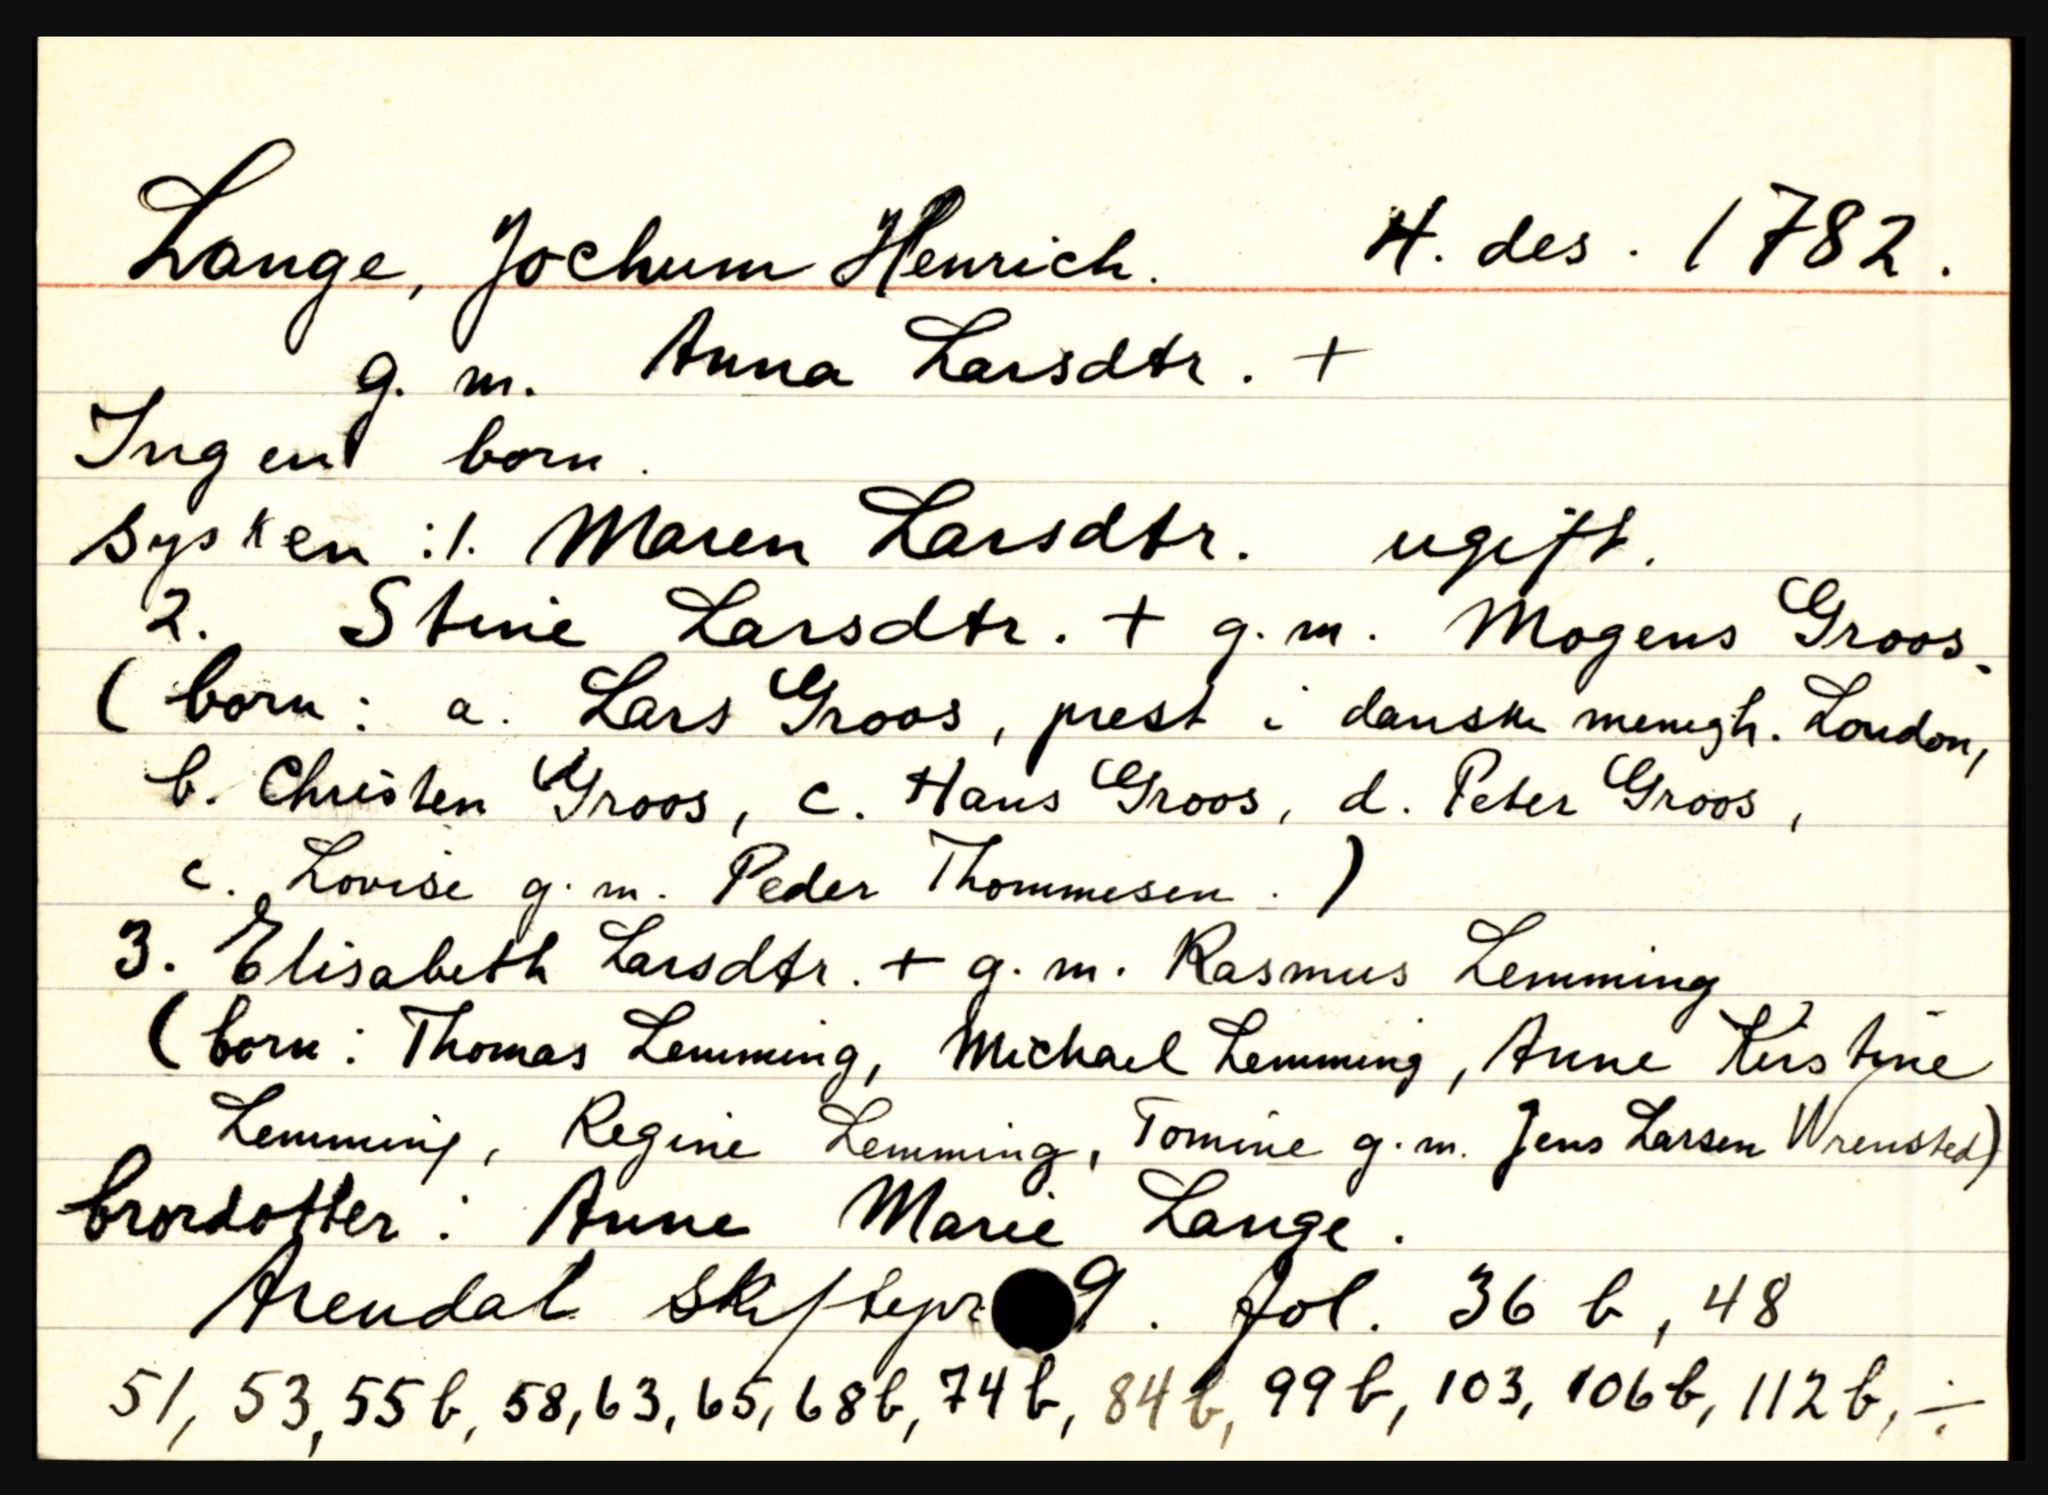 Lange, Jochum Henrich. 4. des. 1782.
g. m. Anna Larsdtr. +
Ingen born.
Sysken: 1. Maren Larsdtr. ugift.
2. Stine Larsdtr. + g. m. Mogens Groos.
(born: a. Lars Groos, prest i danske menigh. London,
b. Christen Groos, c. Hans Groos, d. Peter Groos,
c. Lovise g. m. Peder Thommesen.)
3. Elisabeth Larsdtr. + g. m. Rasmus Lemming
(born: Thomas Lemming, Michael Lemming, Anne Kirstine
Lemming, Regine Lemming, Tomine g. m. Jens Larsen Wrensted)
brordotter: Anne Marie Lange.
Arendal skiftepr 9. fol. 36 b, 48
51, 53, 55b, 58, 63, 65, 68b, 74b, 84b, 99b, 103, 106b, 112b, ÷